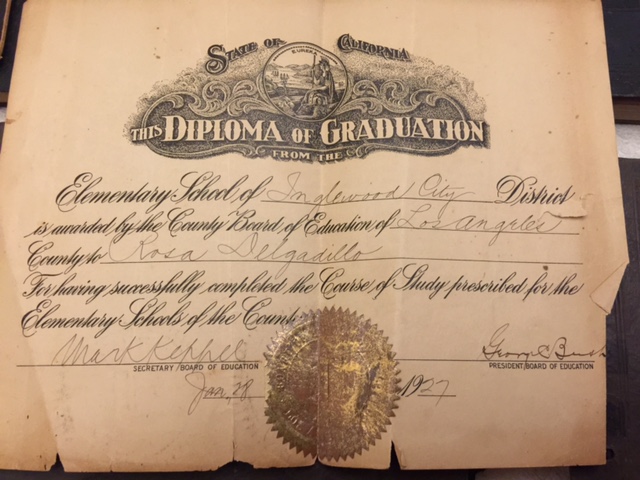 STATE OF CALIFORNIA
EUREKA
THIS DIPLOMA OF GRADUATION
FROM THE
Elementary School of Inglewood City District
is awarded by the County Board of Education of Los Angeles
County to Rosa Delgadillo
For having successfully completed the Course of Study prescribed for the
Elementary Schools of the County
Mark Keppel George C Bush
SECRETARY/BOARD OF EDUCATION PRESIDENT/BOARD OF EDUCATION
Jan, 28 1927